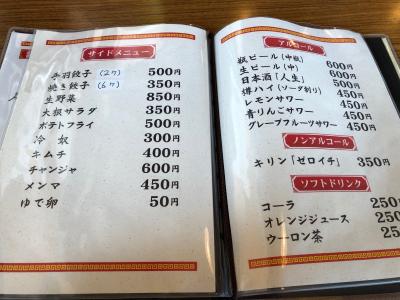 サイドメニュー
手羽餃子 (2ケ) 500円
焼き餃子 (6ケ) 350円
生野菜 850円
大根サラダ 350円
ポテトフライ 500円
冷奴 300円
キムチ 400円
チャンジャ 600円
メンマ 450円
ゆで卵 50円
アルコール
瓶ビール(中瓶) 600円
生ビール(中) 600円
日本酒「人生」 500円
樽ハイ(ソーダ割り) 450円
レモンサワー 450円
青りんごサワー 450円
グレープフルーツサワー 450円
ノンアルコール
キリン「ゼロイチ」 350円
ソフトドリンク
コーラ 250円
オレンジジュース 250
ウーロン茶 25